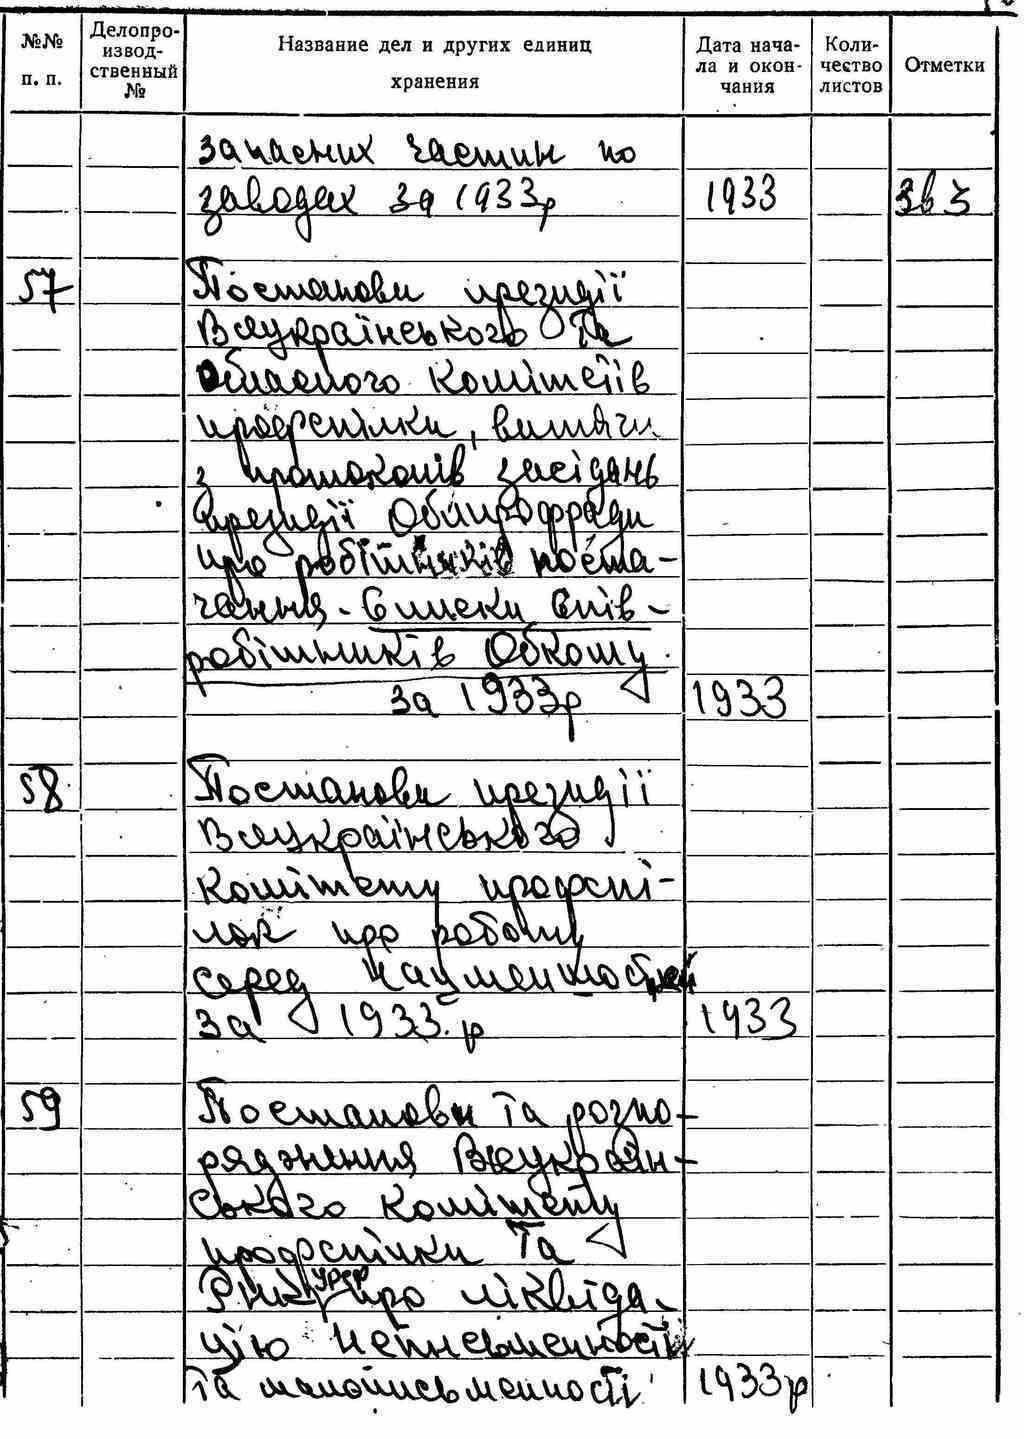 №№ п. п.
Делопроизводственный №
Название дел и других единиц хранения
Дата начала и окончания
Количество листов
Отметки
запасних частин по
заводах за 1933р 1933
57 Постанови президії
Всеукраїнського та
обласного комітетів
профспілки, витяги
з протоколів засідань
президії Облпрофради
про робітників поста-
чання. Списки спів-
робітників Обкому
за 1933р 1933
58 Постанови президії
Всеукраїнського
комітету профспі-
лок про роботу
серед нацменшостей
за 1933 р 1933
59 Постанови та розпо-
рядження Всеукраїн-
ського комітету
профспілки та
РНК УРСР про ліквіда-
цію неписьменності
та малописьменності 1933р